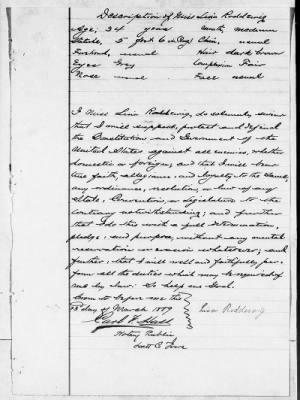 Description of Miss Lina Roddewig
Age, 34 years Mouth, medium
Stature, 5 feet 6 in Eng. Chin, usual
Forehead, usual Hair dark brown
Eyes Gray Complexion Fair
Nose usual Face usual
I Miss Lina Roddewig, do solemnly swear
that I will support, protect and defend
the Constitution and Government of the
United States against all enemies, whether
domestic or foreign; and that I will bear
true faith, allegiance, and loyalty to the same,
any ordinance, resolution or law of any
State, Convention, or Legislature to the
contrary notwithstanding; and further
that I do this with a full determination,
pledge, and purpose, without any mental
reservation or evasion whatsoever; and
further, that I will well and faithfully per-
form all the duties which may be required of
me by law. So help me God.
Sworn to before me this
13 day of March 1879 Lina Roddewig
Notary Public
Scott C. Iowa